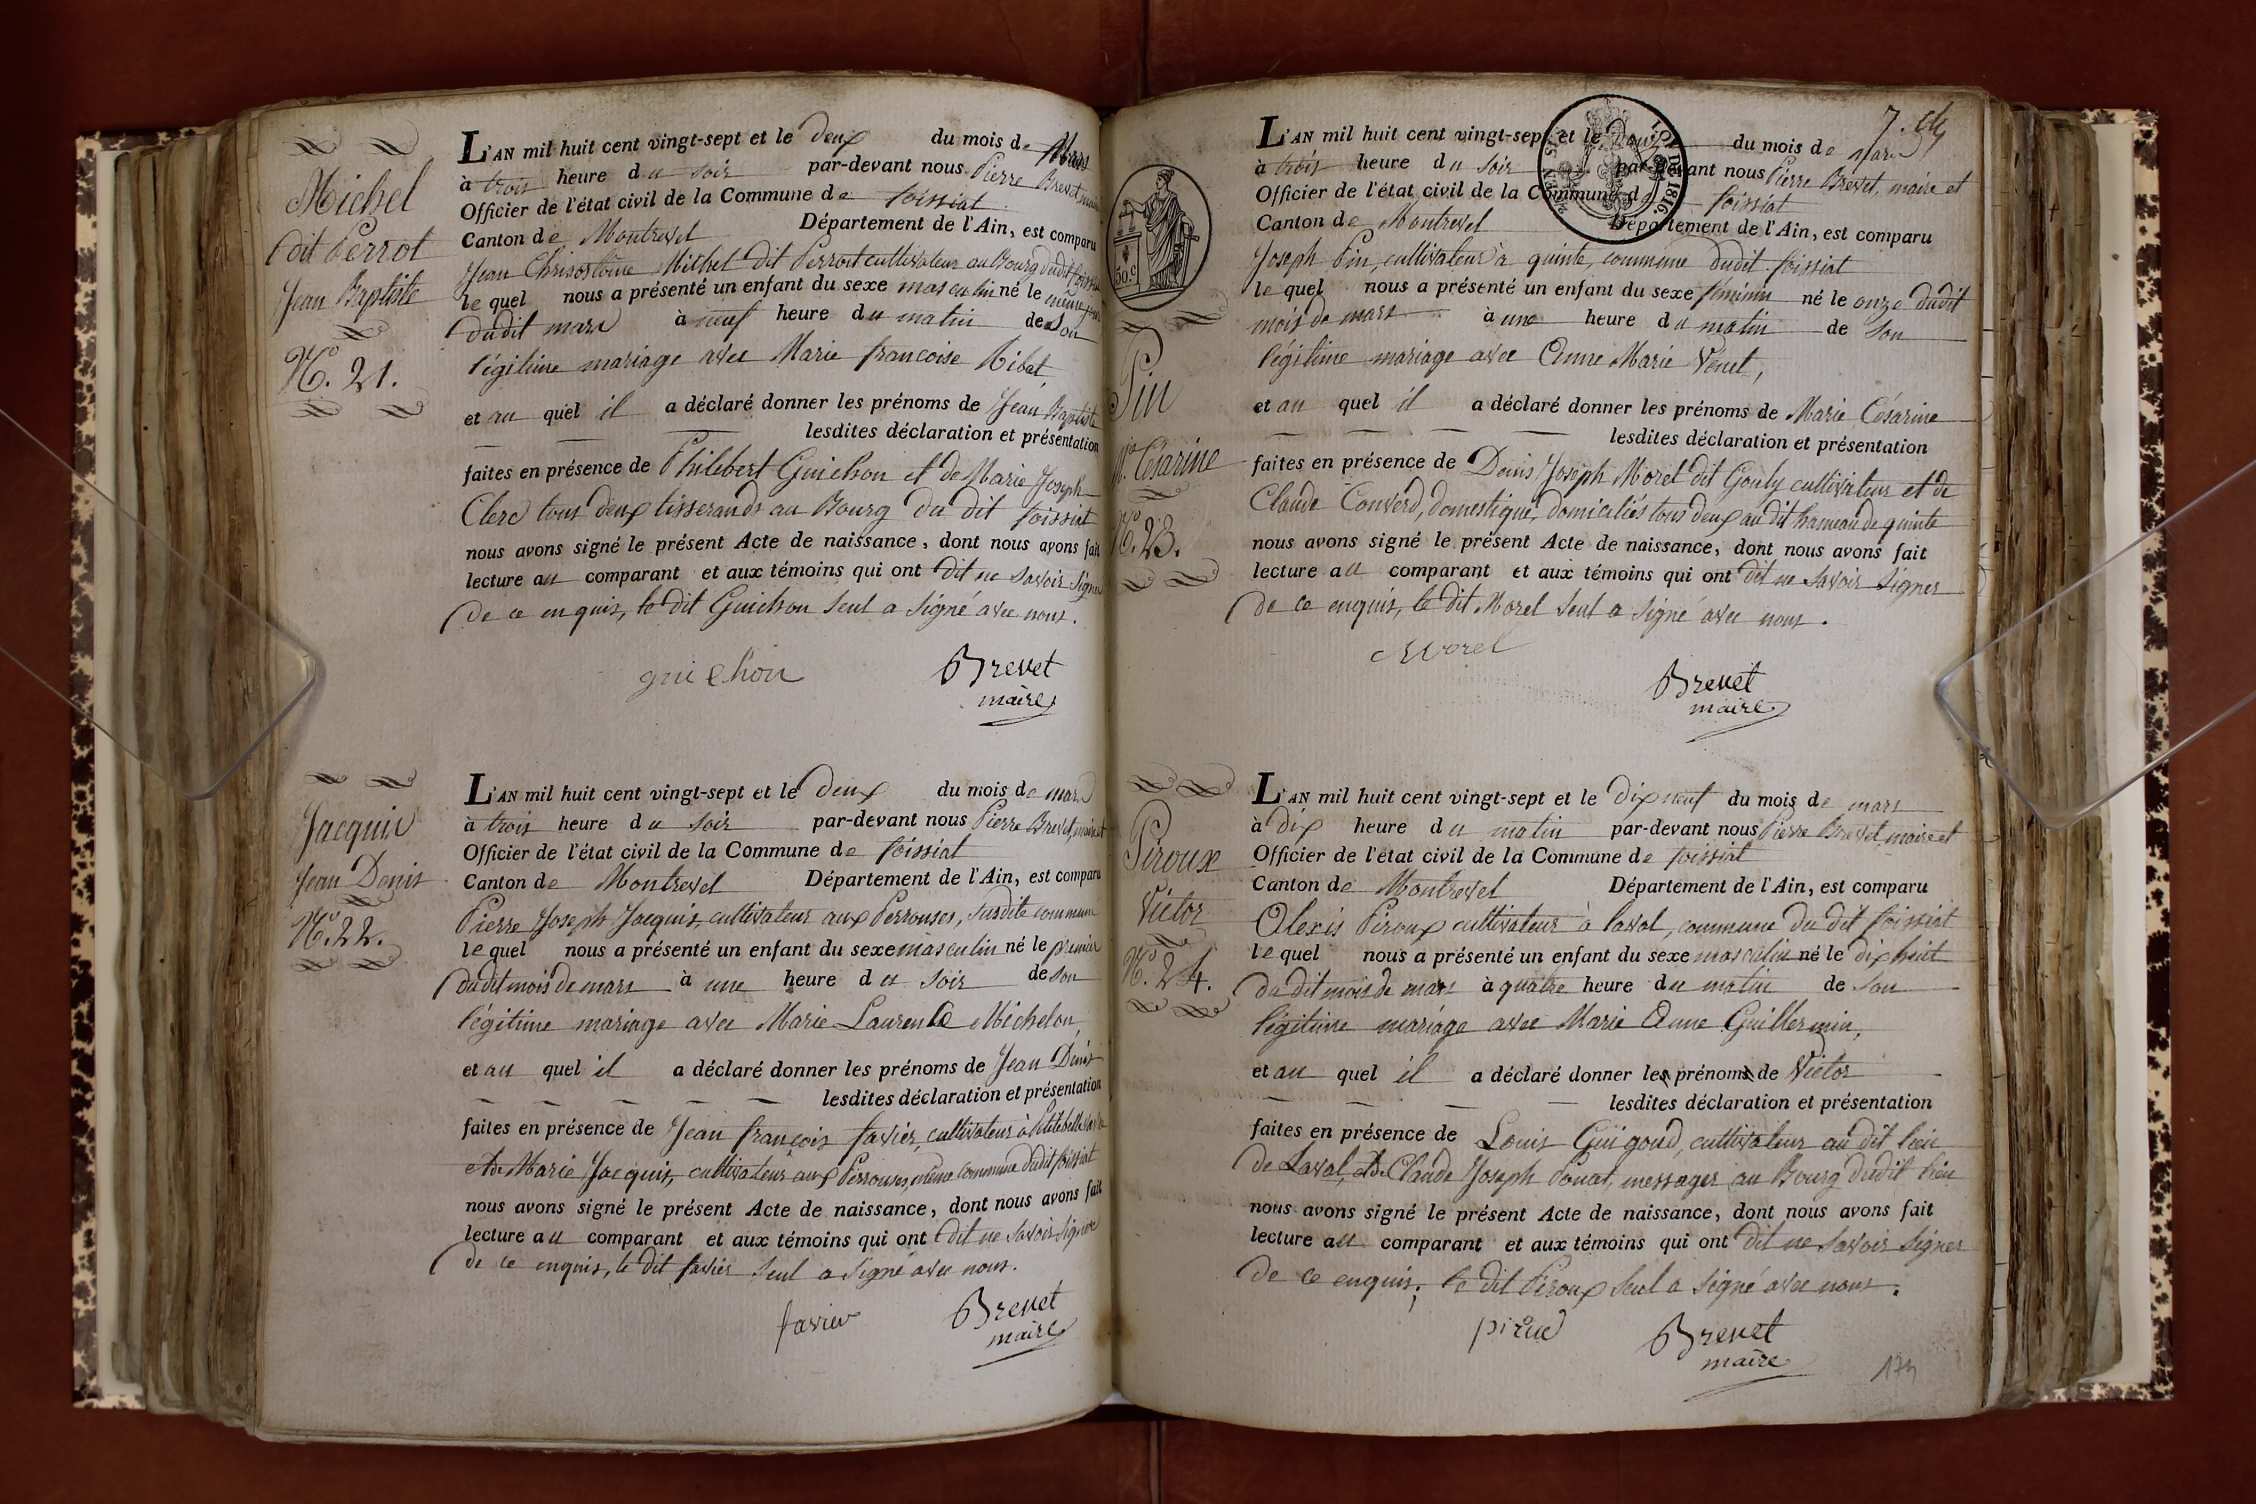 Michel
dit Perrot
Jean Baptiste
N.º 21.
L'AN mil huit cent vingt-sept et le deux du mois de Mars
à trois heure du soir par-devant nous Pierre Brevet maire
Officier de l'état civil de la Commune de foissiat
Canton de Montrevel Département de l'Ain, est comparu
Jean Chrisostôme Michel dit Perrot cultivateur au Bourg dudit foissiat
le quel nous a présenté un enfant du sexe masculin né le même jour
dudit mars à neuf heure du matin de son
légitime mariage avec Marie françoise Ribet,
et au quel il a déclaré donner les prénoms de Jean Baptiste
lesdites déclaration et présentation
faites en présence de Philibert Guichon et de Marie Joseph
Clerc tous deux tisserands au Bourg du dit foissiat
nous avons signé le présent Acte de naissance, dont nous avons fait
lecture au comparant et aux témoins qui ont dit ne savoir signer
de ce enquis, le dit Guichon seul a signé avec nous.
guichon Brevet
maire
Jacquis
Jean Denis
N.º 22.
L'AN mil huit cent vingt-sept et le deux du mois de mars
à trois heure du soir par-devant nous Pierre Brevet, maire et
Officier de l'état civil de la Commune de foissiat
Canton de Montrevel Département de l'Ain, est comparu
Pierre Joseph Jacquis, cultivateur aux Perrouses, susdite commune
le quel nous a présenté un enfant du sexe masculin né le premier
dudit mois de mars à une heure du soir de son
légitime mariage avec Marie Laurence Michelon,
et au quel il a déclaré donner les prénoms de Jean Denis
lesdites déclaration et présentation
faites en présence de Jean françois favier, cultivateur à
et de Marie Jacquis, cultivateur aux Perrouses, même commune dudit foissiat
nous avons signé le présent Acte de naissance, dont nous avons fait
lecture au comparant et aux témoins qui ont dit ne savoir signer
de ce enquis, le dit favier seul a signé avec nous.
favier Brevet
maire
7.
50.c
TIMB. DE 1816.
Pin
M.ie Césarine
N.º 23.
L'AN mil huit cent vingt-sept et le douze du mois de mars
à trois heure du soir par-devant nous Pierre Brevet, maire et
Officier de l'état civil de la Commune de foissiat
Canton de Montrevel Département de l'Ain, est comparu
Joseph Pin, cultivateur à quinte, commune dudit foissiat
le quel nous a présenté un enfant du sexe féminin né le onze dudit
mois de mars à une heure du matin de son
légitime mariage avec Anne Marie Venet,
et au quel il a déclaré donner les prénoms de Marie Césarine
lesdites déclaration et présentation
faites en présence de Denis Joseph Morel dit Gouly cultivateur et de
Claude Converd, domestique, domiciliés tous deux au dit hameau de quinte
nous avons signé le présent Acte de naissance, dont nous avons fait
lecture au comparant et aux témoins qui ont dit ne savoir signer
de ce enquis, le dit Morel seul a signé avec nous.
Morel
Brevet
maire
Piroux
Victor
N.º 24.
L'AN mil huit cent vingt-sept et le dix neuf du mois de mars
à dix heure du matin par-devant nous Pierre Brevet, maire et
Officier de l'état civil de la Commune de foissiat
Canton de Montrevel Département de l'Ain, est comparu
Alexis Piroux cultivateur à laval, commune du dit foissiat
le quel nous a présenté un enfant du sexe masculin né le dix huit
du dit mois de mars à quatre heure du matin de son
légitime mariage avec Marie Anne Guillermin,
et au quel il a déclaré donner les prénoms de Victor
lesdites déclaration et présentation
faites en présence de Louis Guigoud, cultivateur au dit lieu
de Laval, et de Claude Joseph messager au Bourg dudit lieu
nous avons signé le présent Acte de naissance, dont nous avons fait
lecture au comparant et aux témoins qui ont dit ne savoir signer
de ce enquis; le dit Piroux seul a signé avec nous.
Brevet
maire